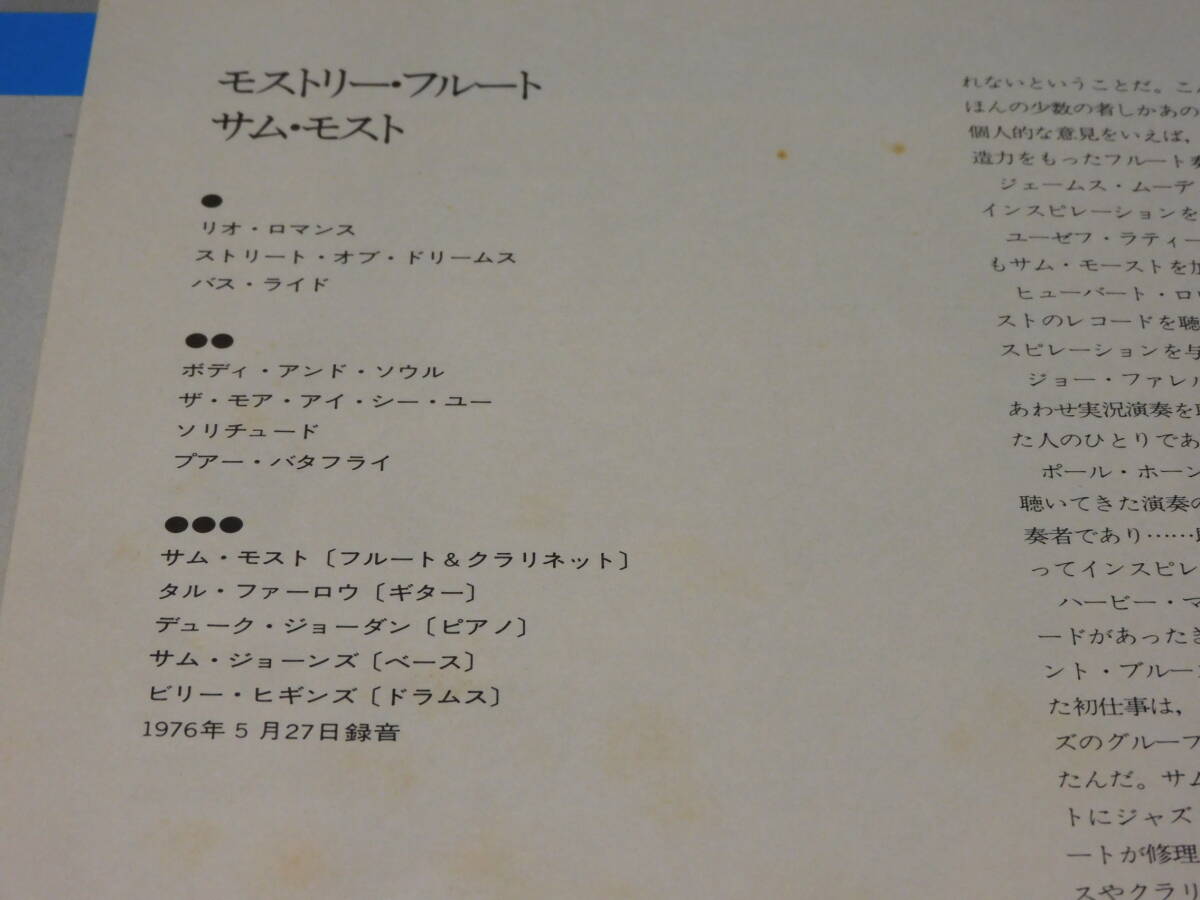 モストリー・フルート
サム・モスト
●
リオ・ロマンス
ストリート・オブ・ドリームス
バス・ライド
●●
ボディ・アンド・ソウル
ザ・モア・アイ・シー・ユー
ソリチュード
プアー・バタフライ
●●●
サム・モスト〔フルート&クラリネット〕
タル・ファーロウ〔ギター〕
デューク・ジョーダン〔ピアノ〕
サム・ジョーンズ〔ベース〕
ビリー・ヒギンズ〔ドラムス〕
1976年5月27日録音
れないということだ。こ
ほんの少数の者しかあの
個人的な意見をいえば、
造力をもったフルート
ジェームス・ムーデ
インスピレーションを
ユーゼフ・ラティー
もサム・モーストを
ヒューバート・ロ
ストのレコードを聴
スピレーションを与
ジョー・ファレル
あわせ実況演奏を
た人のひとりであ
ポール・ホーン
聴いてきた演奏の
奏者であり……
ってインスピレ
ハービー・マ
ードがあった
ント・ブルー
た初仕事は、
ズのグループ
たんだ。サム
トにジャズ
ートが修理
スやクラリ